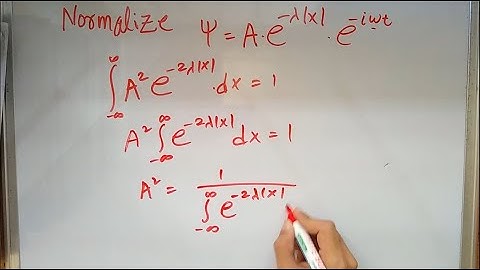 Normalize Ψ = A·e^{-λ|x|}·e^{-iωt}
∫_{-∞}^{∞} A² e^{-2λ|x|}·dx = 1
A² ∫_{-∞}^{∞} e^{-2λ|x|} dx = 1
A² = 1 / ∫_{-∞}^{∞} e^{-2λ|x|}